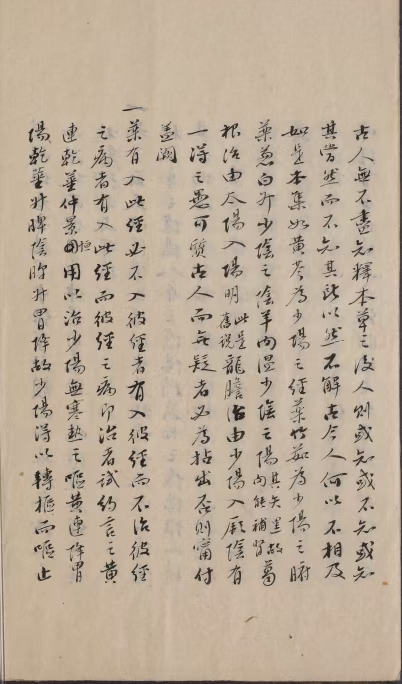 古人無不盡知釋本草之後人則或知或不知或知
其當然而不知其所以然不解古今人何以不相及
如是本集如黃芩為少陽之經藥竹茹為少陽之腑
藥蔥白升少陰之陰羊肉溫少陰之陽其矢黑故肉能補腎葛
根治由太陽入陽明此是舊說龍膽治由少陽入厥陰有
一得之愚可質古人而無疑者必為拈出否則寧付
蓋闕
一藥有入此經必不入彼經者有入彼經而不治彼經
之病者有入此經而彼經之病即治者試約言之黃
連乾薑仲景恒用以治少陽無寒熱之嘔黃連降胃
陽乾薑升脾陰脾升胃降故少陽得以轉樞而嘔止